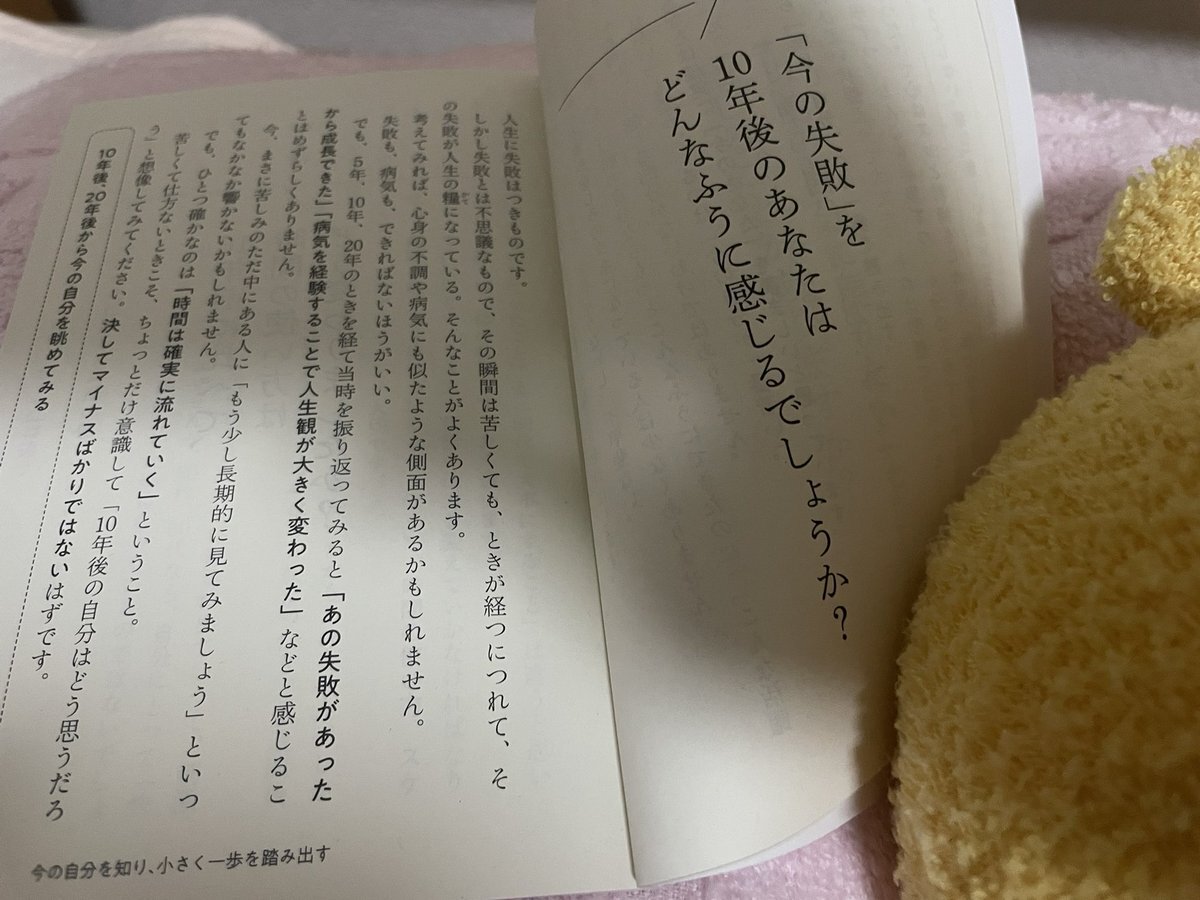 「今の失敗」を
10年後のあなたは
どんなふうに感じるでしょうか?
人生に失敗はつきものです。
しかし失敗とは不思議なもので、その瞬間は苦しくても、ときが経つにつれて、そ
の失敗が人生の糧になっている。そんなことがよくあります。
考えてみれば、心身の不調や病気にも似たような側面があるかもしれません。
失敗も、病気も、できればないほうがいい。
でも、5年、10年、20年のときを経て当時を振り返ってみると「あの失敗があった
から成長できた」「病気を経験することで人生観が大きく変わった」などと感じるこ
とはめずらしくありません。
今、まさに苦しみのただ中にある人に「もう少し長期的に見てみましょう」といっ
てもなかなか響かないかもしれません。
でも、ひとつ確かなのは「時間は確実に流れていく」ということ。
苦しくて仕方ないときこそ、ちょっとだけ意識して「10年後の自分はどう思うだろ
う」と想像してみてください。決してマイナスばかりではないはずです。
10年後、20年後から今の自分を眺めてみる
今の自分を知り、小さく一歩を踏み出す